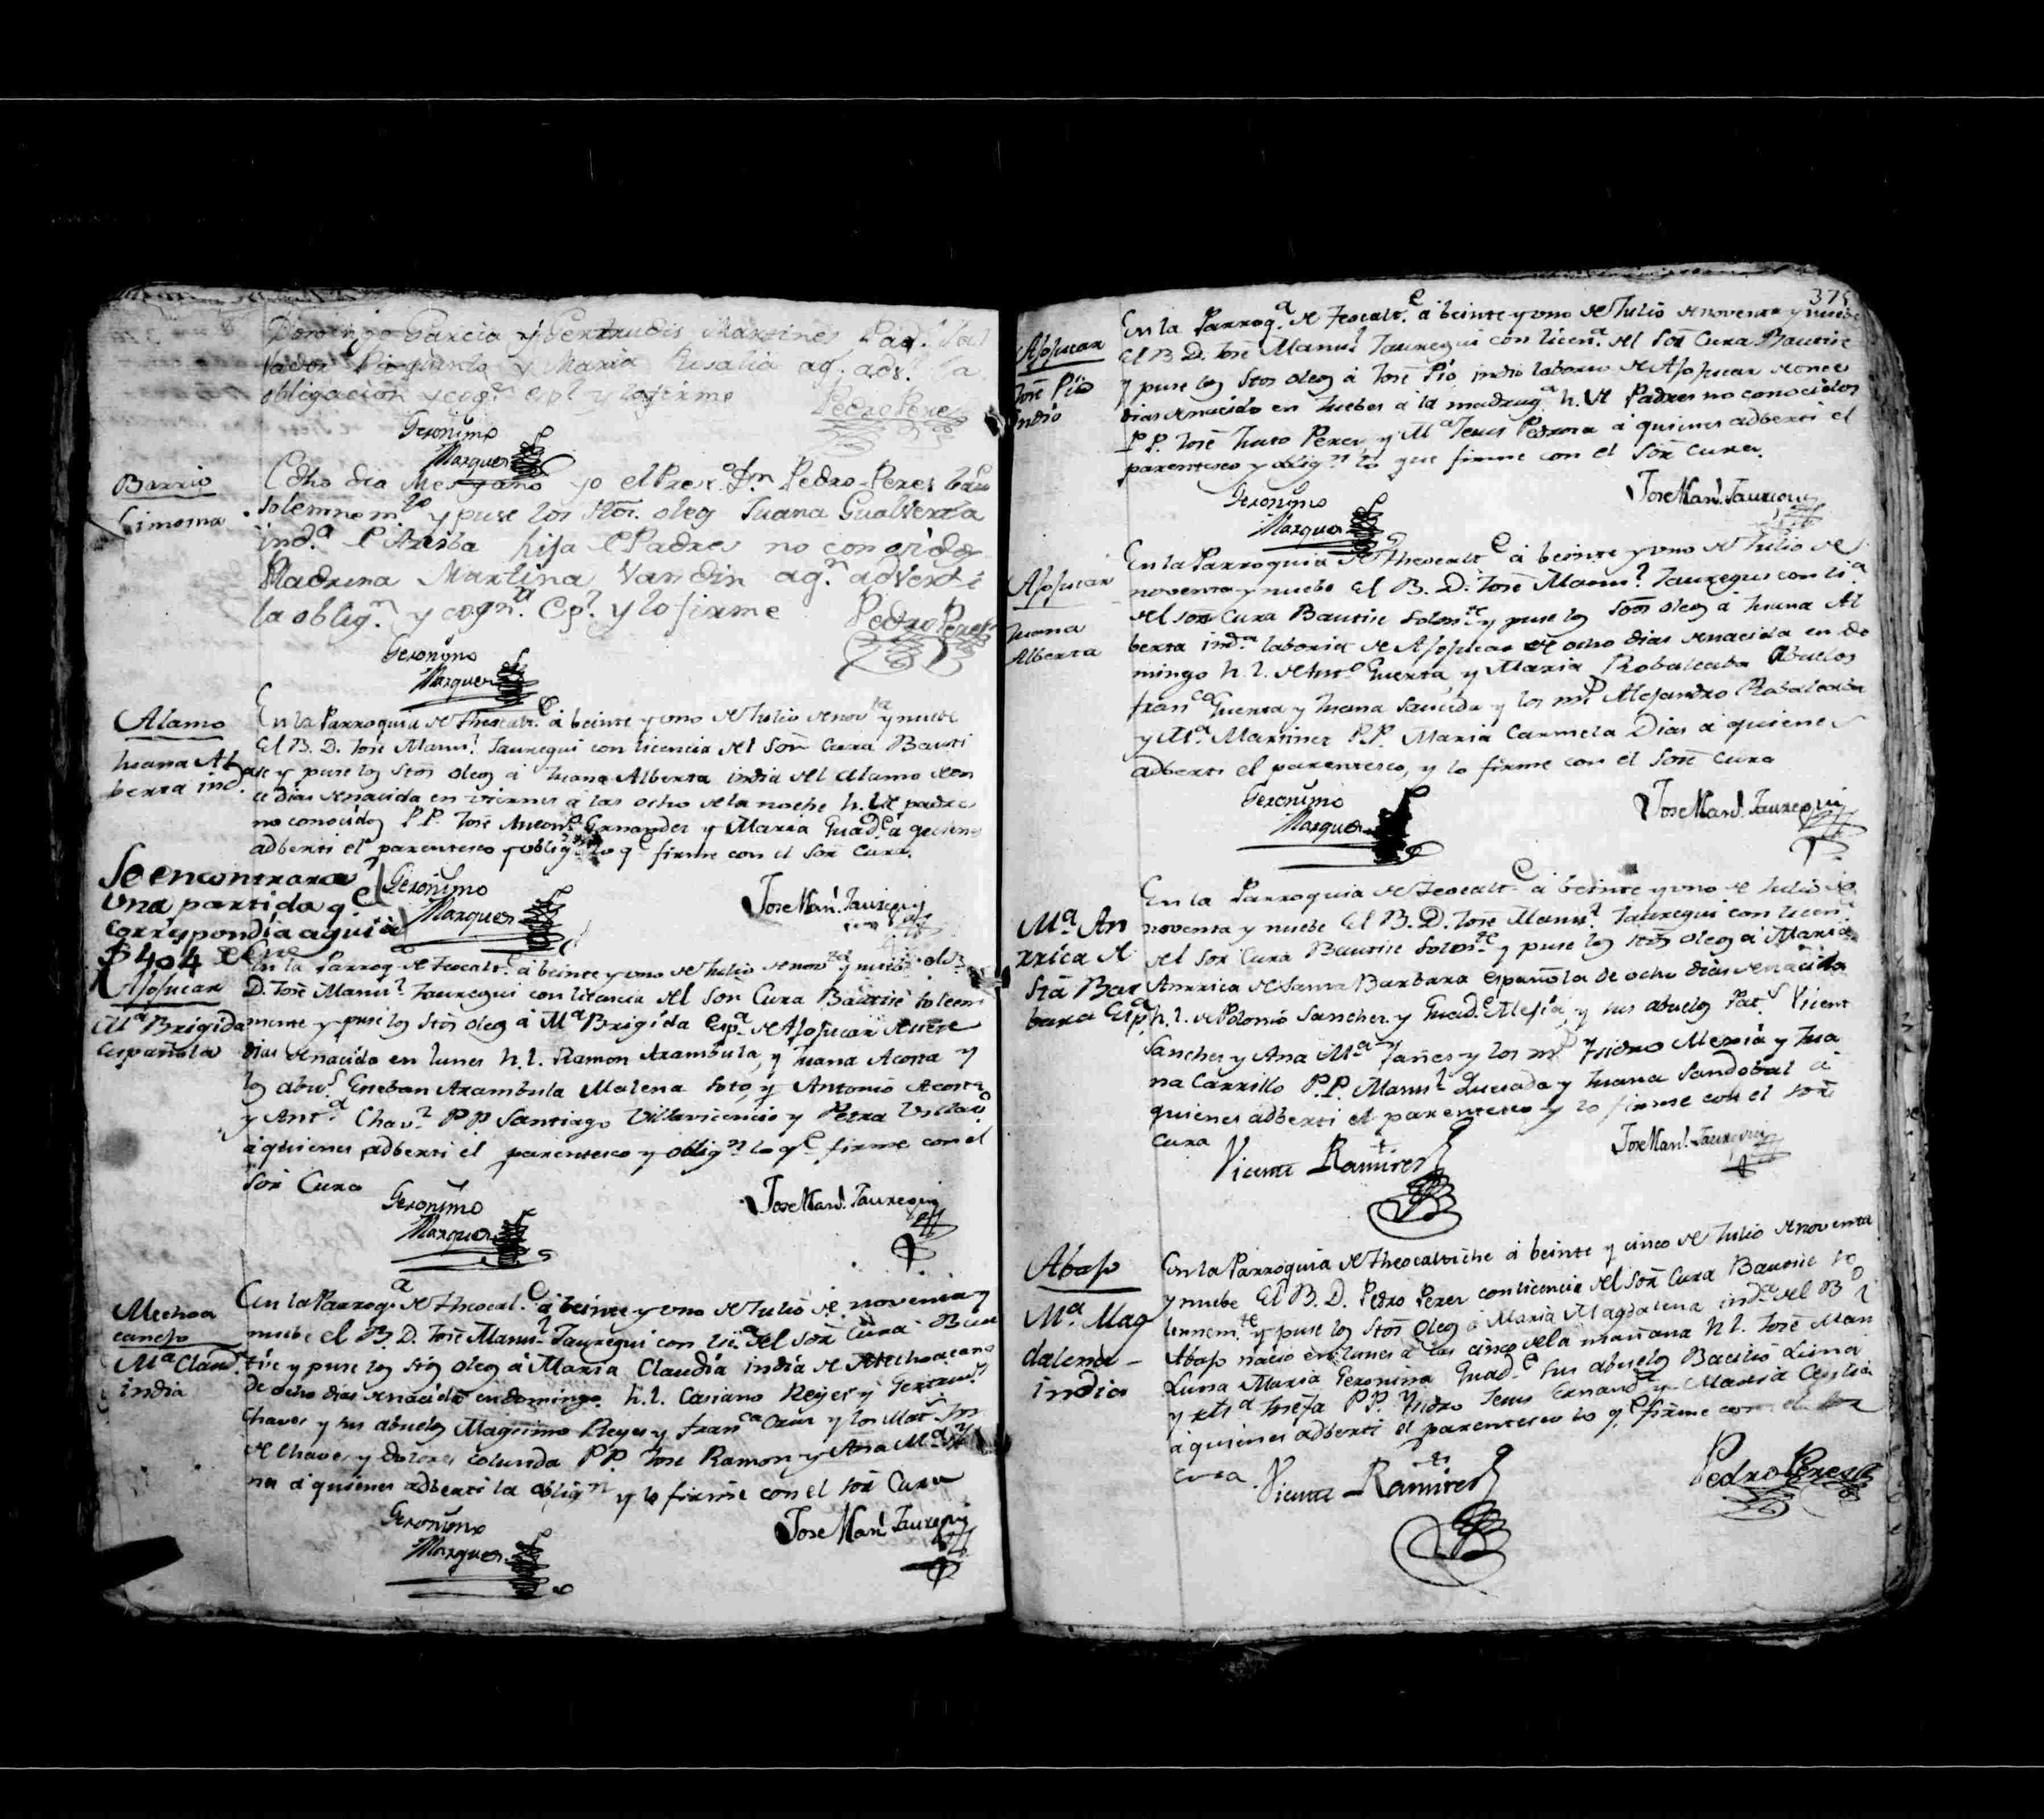 Domingo Garcia y Gertrudis Martines Pad.
y Maria Rosalia aq. adv. la
obligacion y cog.n esp.l y lo firme
Pedro Peres
Geronimo
Marques
Barrio
dho dia Mes y año yo el Pres.o Dn Pedro Peres bau
Limosna
solemnem.te y puse los Stos. oleos Juana Gualverta
ind.a de Arriba hija de Padres no conosidos
Madrina Martina Vandin aq.n adverti
la oblig.n y cogn.n Esp.l y lo firme
Pedro Peres
Geronimo
Marques
Alamo
Juana Al
berta ind.a
En la Parroquia de Theocalt.e á beinte y uno de Julio de nov.ta y nuebe
El B. D. José Manu.l Jauregui con licencia del Sor Cura Bauti
se y puse los Stos oleos á Juana Alberta india del Alamo de on
ce dias de nacida en viernes á las ocho de la noche h. de padres
no conocidos P.P. José Anton.o Ernandes y Maria Guad.e á quienes
adberti el parentesco y oblig.n lo q.e firme con el Sor Cura.
Geronimo
Marques
Jose Man.l Jauregui
Se encontrara
una partida q.e
correspondia aqui á
f 404
Ajojucar
M.a Brigida
española
En la Parroq.a de Teocalt.e á beinte y uno de Julio de nov.ta y nuebe el B.
D. José Manu.l Jauregui con licencia del Sor Cura Bautisé solem
mente y puse los Stos oleos á M.a Brigida Esp.a de Ajojucar de siete
dias de nacida en lunes h. l. Ramon Arambula, y Juana Acosta y
los abu.s Esteban Arambula Malena Soto, y Antonio Acosta
y Ant.a Chav.s PP Santiago Villavicencio y Petra
á quienes adberti el parentesco y oblig.n lo q.e firme con el
Sor Cura
Geronimo
Marques
Jose Man.l Jauregui
Mechoa
canejo
M.a Claud.a
india
En la Parroq.a de Theocal.e á beinte y uno de Julio de noventa y
nuebe el B. D. José Manu.l Jauregui con lic.a del Sor Cura Bau
tise y puse los Stos oleos á Maria Claudia india de Mechoacanejo
de ocho dias de nacida en domingo h. l. Casiano Reyes y Gertrud.s
Chaves y sus abuelos Magsimo Reyes y Fran.ca Cruz y los Mat.s
de Chaves y Dolores PP. Jose Ramon y Ana M.a
na á quienes adberti la oblig.n y lo firme con el Sor Cura
Geronimo
Marques
Jose Man.l Jauregui
Ajojucar
José Pio
Indio
En la Parroq.a de Teocalt.e á beinte y uno de Julio de noventa y nuebe
El B D. José Manu.l Jauregui con licen.a del Sor Cura Bautise
y puse los Stos oleos á José Pio indio laborio de Ajojucar de once
dias de nacido en Juebes á la madrug.a h. de Padres no conocidos
P.P. José Justo Peres, y M.a Jesus Pedrosa á quienes adberti el
parentesco y oblig.n lo que firme con el Sor Cura.
Geronimo
Marques
Jose Man.l Jauregui
Ajojucar
Juana
Alberta
En la Parroquia de Theocalt.e á beinte y uno de Julio de
noventa y nuebe El B. D. José Manu.l Jauregui con li.a
del Sor Cura Bautise solem.te y puse los Stos oleos á Juana Al
berta ind.a laboria de Ajojucar de ocho dias de nacida en do
mingo h. l. de Guerta, y Maria Robalcaba Abuelos
Fran.co Guerta y Juana Sauceda y los m.s Alejandro Robalcaba
y M.a Martines P.P. Maria Carmela Dias á quienes
adberti el parentesco, y lo firme con el Sor Cura
Geronimo
Marques
Jose Man.l Jauregui
M.a An
rrica de
Sta Bar
bara Esp.a
En la Parroquia de Teocalt.e á beinte y uno de Julio de
noventa y nuebe El B. D. José Manu.l Jauregui con licen.a
del Sor Cura Bautise solem.te y puse los Stos oleos á Maria
Anrrica de Santa Barbara española de ocho dias de nacida
h. l. de Polonio Sanches y Guad.e Mesia, y sus abuelos Pat.s Vicent
Sanches y Ana M.a Yañes y los m.s Ysidro Mexia y Jua
na Carrillo P.P. Manu.l Quesada y Juana Sandobal á
quienes adberti el parentesco y lo firme con el Sor
Cura
Vicente Ramires
Jose Man.l Jauregui
Abajo
M.a Mag
dalena
india
En la Parroquia de Theocaltiche á beinte y cinco de Julio de noventa
y nuebe El B. D. Pedro Peres con licencia del Sor Cura Bautise so
lennem.te y puse los Stos Oleos á Maria Magdalena ind.a del B.o d
Abajo nacio en lunes á las cinco de la mañana h l. José Man
Luna Maria Geronima Guad.e sus abuelos Bacilio Luna
y M.a Josefa P.P. Ysidro Jesus Ernand.s y Maria Cesilia
á quienes adberti el parentesco lo q.e firme con el Sor
Cura
Vicente Ramires
Pedro Peres